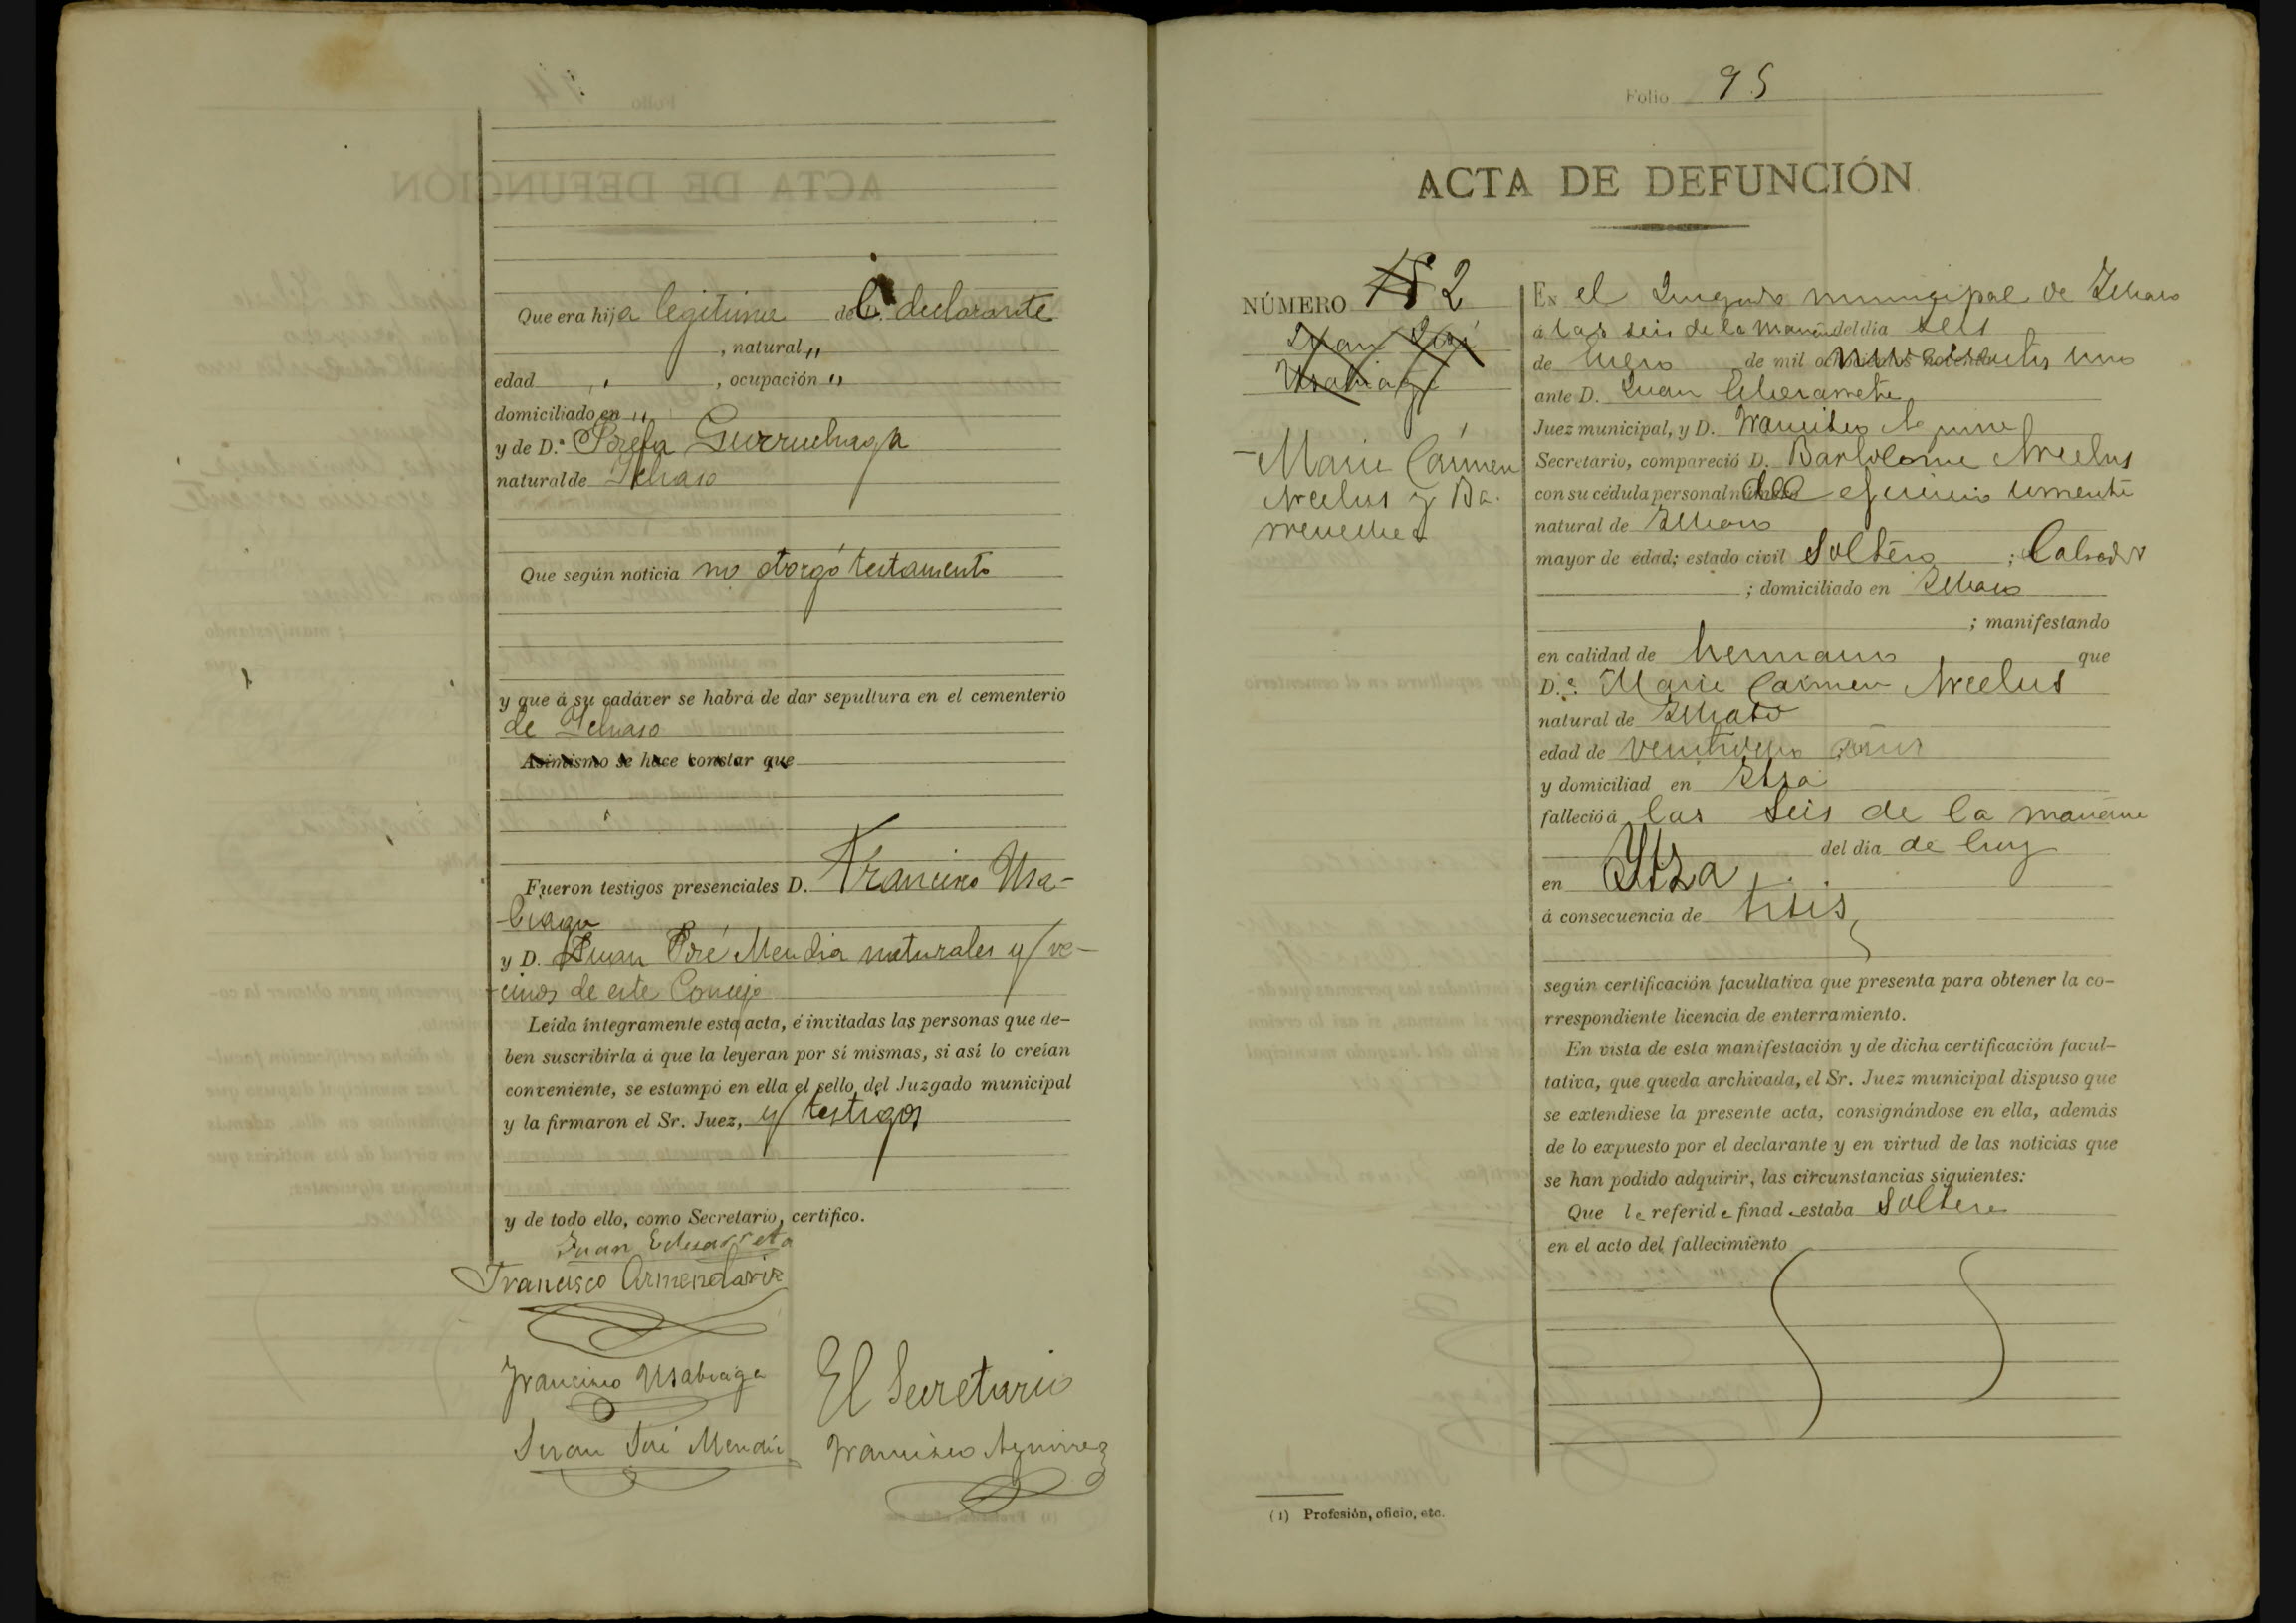 Que era hija legitima del declarante
, natural "
edad " , ocupación "
domiciliado en "
y de D.ª Josefa Gurruchaga
natural de Ichaso
Que según noticia no otorgó testamento
y que á su cadáver se habrá de dar sepultura en el cementerio
de Ichaso
Asimismo se hace constar que
Fueron testigos presenciales D. Francisco Usa-
biaga
y D. Juan José Mendia naturales y ve-
cinos de este Concejo
Leída íntegramente esta acta, é invitadas las personas que de-
ben suscribirla á que la leyeran por sí mismas, si así lo creían
conveniente, se estampó en ella el sello del Juzgado municipal
y la firmaron el Sr. Juez, y testigos
y de todo ello, como Secretario, certifico.
Juan Echarreta
Francisco Armendariz
Francisco Usabiaga
El Secretario
Juan José Mendia
Francisco Aguirre
Folio 95
ACTA DE DEFUNCIÓN
NÚMERO 2
Juan José
Usabiaga
Maria Cármen
Arcelus y Ba-
rreneche
En el Juzgado municipal de Ichaso
á las seis de la mañana del día seis
de Enero de mil novecientos uno
ante D. Juan Echarreta
Juez municipal, y D. Francisco Aguirre
Secretario, compareció D. Bartolome Arcelus
con su cédula personal del ejercicio corriente
natural de Ichaso
mayor de edad; estado civil Soltero ; Labrador
; domiciliado en Ichaso
; manifestando
en calidad de hermano que
D.ª Maria Carmen Arcelus
natural de Ichaso
edad de años
y domiciliad en
falleció á las seis de la mañana
del día de hoy
en
á consecuencia de tisis
según certificación facultativa que presenta para obtener la co-
rrespondiente licencia de enterramiento.
En vista de esta manifestación y de dicha certificación facul-
tativa, que queda archivada, el Sr. Juez municipal dispuso que
se extendiese la presente acta, consignándose en ella, además
de lo expuesto por el declarante y en virtud de las noticias que
se han podido adquirir, las circunstancias siguientes:
Que la referida finada estaba Soltera
en el acto del fallecimiento
(1) Profesión, oficio, etc.